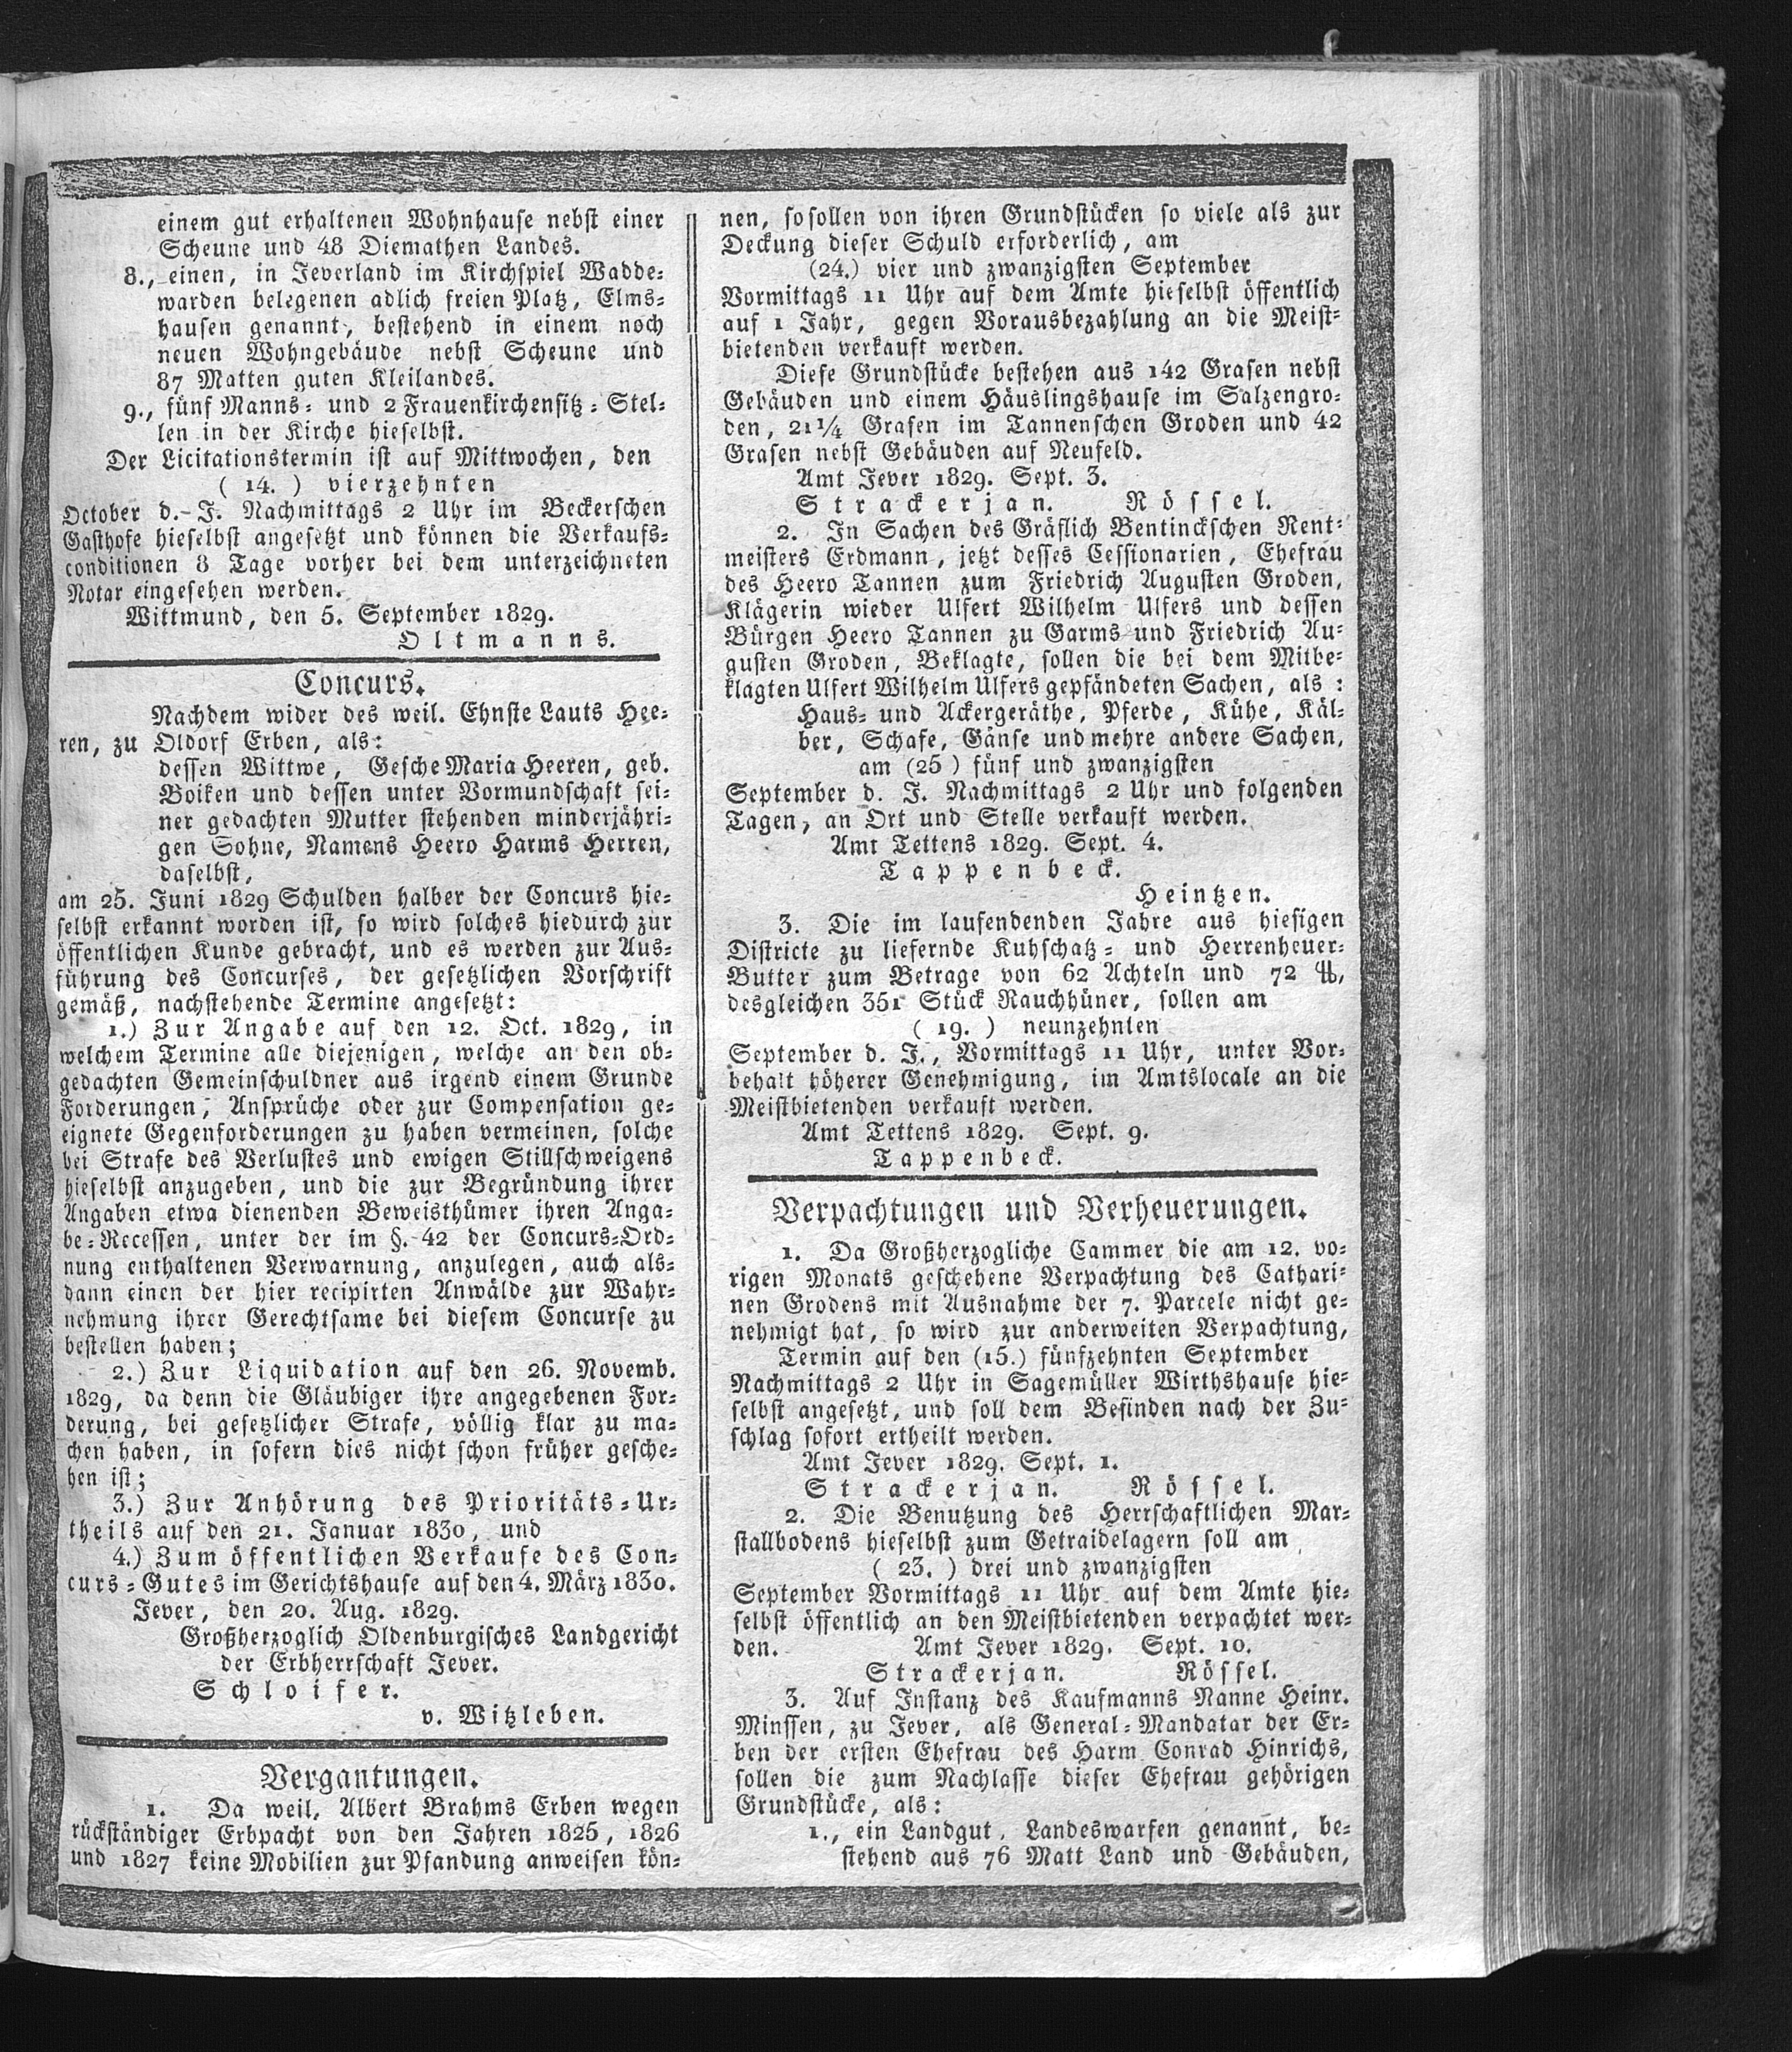 einem gut erhaltenen Wohnhause nebst einer
Scheune und 48 Diemathen Landes.
8., einen, in Jeverland im Kirchspiel Wadde-
warden belegenen adlich freien Platz, Elms-
hausen genannt, bestehend in einem noch
neuen Wohngebäude nebst Scheune und
87 Matten guten Kleilandes.
9., fünf Manns- und 2 Frauenkirchensitz-Stel-
len in der Kirche hieselbst.
Der Licitationstermin ist auf Mittwochen, den
( 14. ) vierzehnten
October d. J. Nachmittags 2 Uhr im Beckerschen
Gasthofe hieselbst angesetzt und können die Verkaufs-
conditionen 8 Tage vorher bei dem unterzeichneten
Notar eingesehen werden.
Wittmund, den 5. September 1829.
Oltmanns.
Concurs.
Nachdem wider des weil. Ehnste Lauts Hee-
ren, zu Oldorf Erben, als:
dessen Wittwe, Gesche Maria Heeren, geb.
Boiken und dessen unter Vormundschaft sei-
ner gedachten Mutter stehenden minderjähri-
gen Sohne, Namens Heero Harms Herren,
daselbst,
am 25. Juni 1829 Schulden halber der Concurs hie-
selbst erkannt worden ist, so wird solches hiedurch zur
öffentlichen Kunde gebracht, und es werden zur Aus-
führung des Concurses, der gesetzlichen Vorschrift
gemäß, nachstehende Termine angesetzt:
1.) Zur Angabe auf den 12. Oct. 1829, in
welchem Termine alle diejenigen, welche an den ob-
gedachten Gemeinschuldner aus irgend einem Grunde
Forderungen, Ansprüche oder zur Compensation ge-
eignete Gegenforderungen zu haben vermeinen, solche
bei Strafe des Verlustes und ewigen Stillschweigens
hieselbst anzugeben, und die zur Begründung ihrer
Angaben etwa dienenden Beweisthümer ihren Anga-
be-Recessen, unter der im §. 42 der Concurs-Ord-
nung enthaltenen Verwarnung, anzulegen, auch als-
dann einen der hier recipirten Anwälde zur Wahr-
nehmung ihrer Gerechtsame bei diesem Concurse zu
bestellen haben;
2.) Zur Liquidation auf den 26. Novemb.
1829, da denn die Gläubiger ihre angegebenen For-
derung, bei gesetzlicher Strafe, völlig klar zu ma-
chen haben, in sofern dies nicht schon früher gesche-
hen ist;
3.) Zur Anhörung des Prioritäts-Ur-
theils auf den 21. Januar 1830, und
4.) Zum öffentlichen Verkaufe des Con-
curs-Gutes im Gerichtshause auf den 4. März 1830.
Jever, den 20. Aug. 1829.
Großherzoglich Oldenburgisches Landgericht
der Erbherrschaft Jever.
Schloifer.
v. Witzleben.
Vergantungen.
1. Da weil. Albert Brahms Erben wegen
rückständiger Erbpacht von den Jahren 1825, 1826
und 1827 keine Mobilien zur Pfandung anweisen kön-
nen, so sollen von ihren Grundstücken so viele als zur
Deckung dieser Schuld erforderlich, am
(24.) vier und zwanzigsten September
Vormittags 11 Uhr auf dem Amte hieselbst öffentlich
auf 1 Jahr, gegen Vorausbezahlung an die Meist-
bietenden verkauft werden.
Diese Grundstücke bestehen aus 142 Grasen nebst
Gebäuden und einem Häuslingshause im Salzengro-
den, 21 1/4 Grasen im Tannenschen Groden und 42
Grasen nebst Gebäuden auf Neufeld.
Amt Jever 1829. Sept. 3.
Strackerjan. Rössel.
2. In Sachen des Gräflich Bentinckschen Rent-
meisters Erdmann, jetzt desses Cessionarien, Ehefrau
des Heero Tannen zum Friedrich Augusten Groden,
Klägerin wieder Ulfert Wilhelm Ulfers und dessen
Bürgen Heero Tannen zu Garms und Friedrich Au-
gusten Groden, Beklagte, sollen die bei dem Mitbe-
klagten Ulfert Wilhelm Ulfers gepfändeten Sachen, als:
Haus- und Ackergeräthe, Pferde, Kühe, Käl-
ber, Schafe, Gänse und mehre andere Sachen,
am (25) fünf und zwanzigsten
September d. J. Nachmittags 2 Uhr und folgenden
Tagen, an Ort und Stelle verkauft werden.
Amt Tettens 1829. Sept. 4.
Tappenbeck.
Heintzen.
3. Die im laufendenden Jahre aus hiesigen
Districte zu liefernde Kuhschatz- und Herrenheuer-
Butter zum Betrage von 62 Achteln und 72 ℔,
desgleichen 351 Stück Rauchhüner, sollen am
( 19. ) neunzehnten
September d. J., Vormittags 11 Uhr, unter Vor-
behalt höherer Genehmigung, im Amtslocale an die
Meistbietenden verkauft werden.
Amt Tettens 1829. Sept. 9.
Tappenbeck.
Verpachtungen und Verheuerungen.
1. Da Großherzogliche Cammer die am 12. vo-
rigen Monats geschehene Verpachtung des Cathari-
nen Grodens mit Ausnahme der 7. Parcele nicht ge-
nehmigt hat, so wird zur anderweiten Verpachtung,
Termin auf den (15.) fünfzehnten September
Nachmittags 2 Uhr in Sagemüller Wirthshause hie-
selbst angesetzt, und soll dem Befinden nach der Zu-
schlag sofort ertheilt werden.
Amt Jever 1829. Sept. 1.
Strackerjan. Rössel.
2. Die Benutzung des Herrschaftlichen Mar-
stallbodens hieselbst zum Getraidelagern soll am
( 23. ) drei und zwanzigsten
September Vormittags 11 Uhr auf dem Amte hie-
selbst öffentlich an den Meistbietenden verpachtet wer-
den. Amt Jever 1829. Sept. 10.
Strackerjan. Rössel.
3. Auf Instanz des Kaufmanns Nanne Heinr.
Minssen, zu Jever, als General-Mandatar der Er-
ben der ersten Ehefrau des Harm Conrad Hinrichs,
sollen die zum Nachlasse dieser Ehefrau gehörigen
Grundstücke, als:
1., ein Landgut, Landeswarfen genannt, be-
stehend aus 76 Matt Land und Gebäuden,